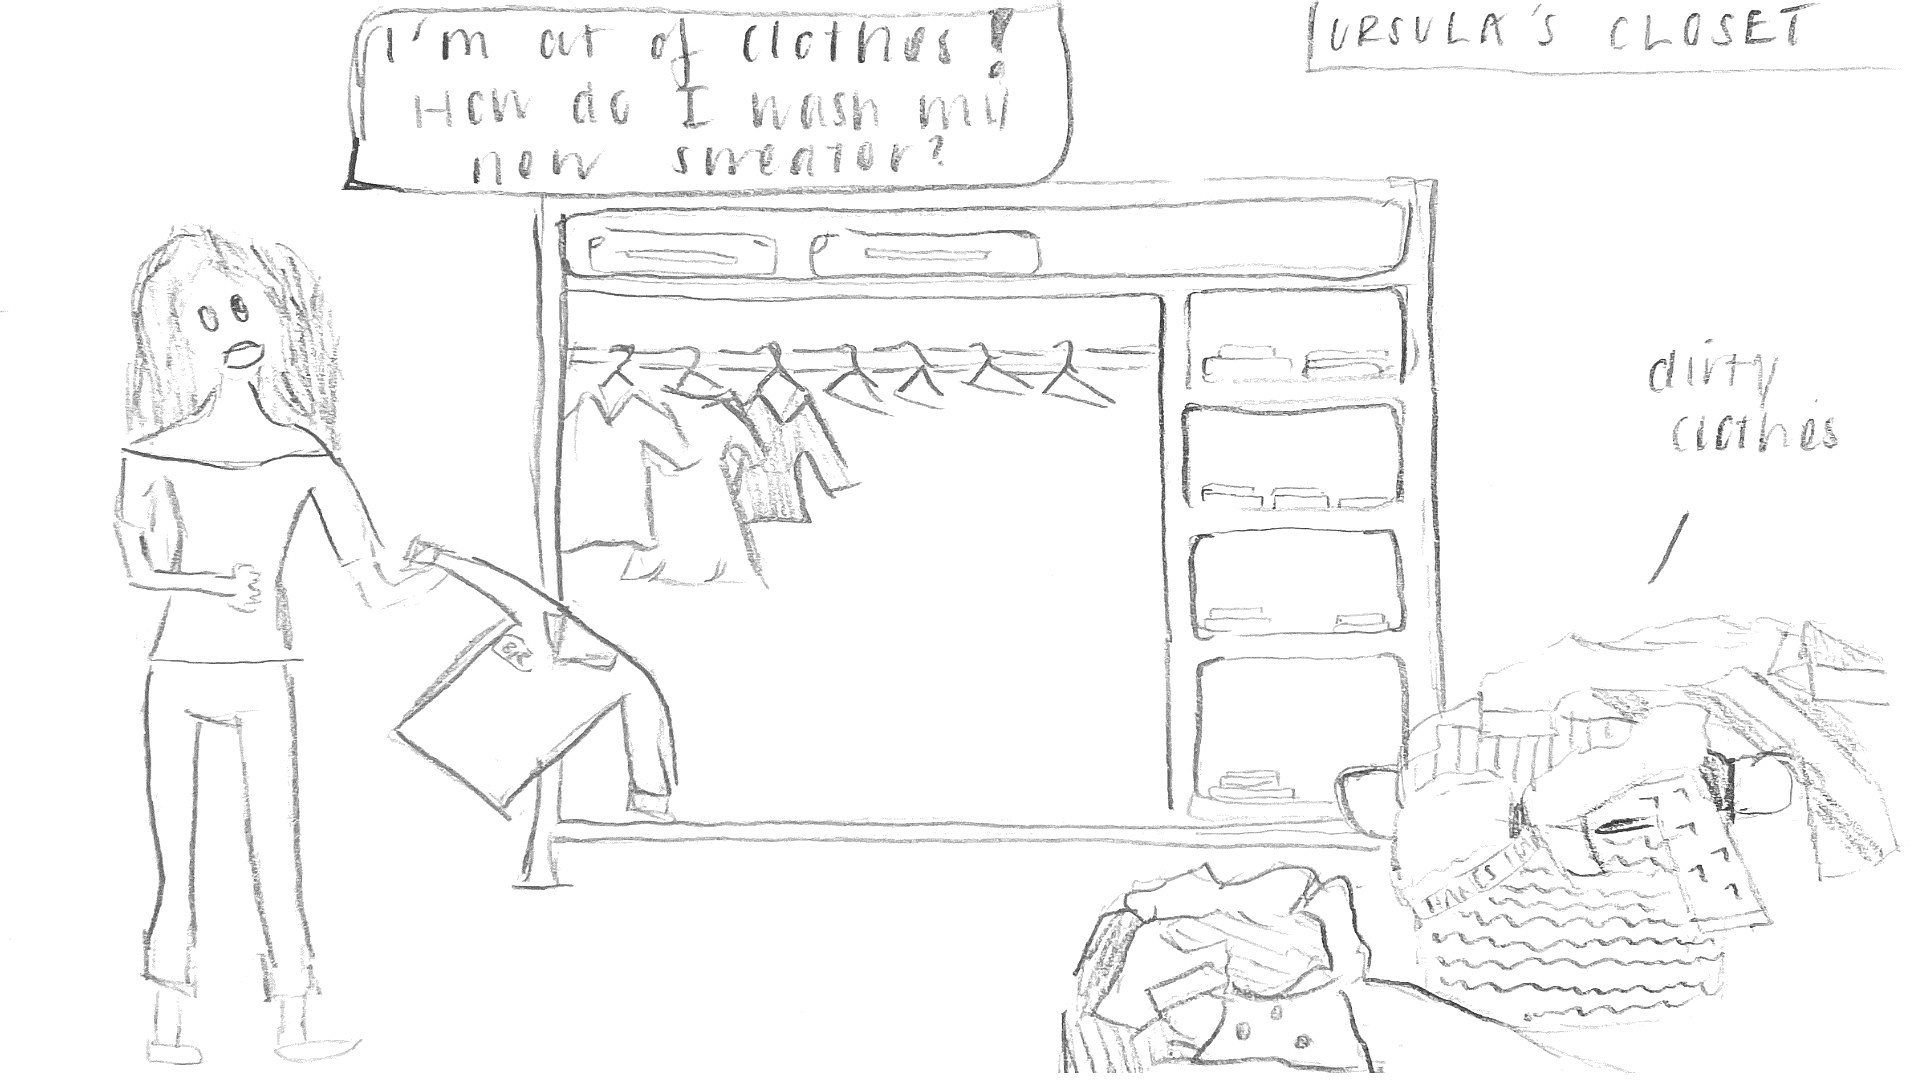 I'm out of clothes!
How do I wash my
new sweator?
URSULA'S CLOSET
dirty
clothes
BR
HANES